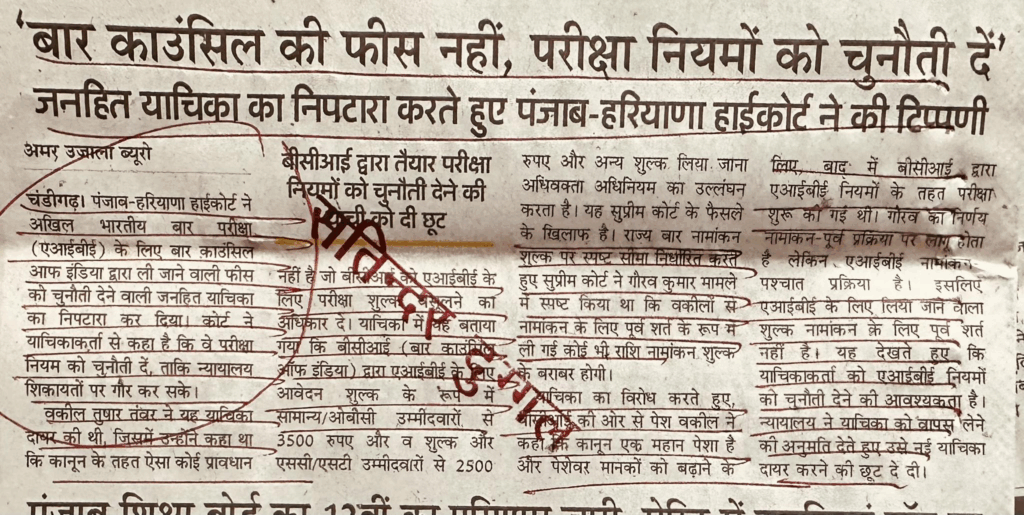 'बार काउंसिल की फीस नहीं, परीक्षा नियमों को चुनौती दें'
जनहित याचिका का निपटारा करते हुए पंजाब-हरियाणा हाईकोर्ट ने की टिप्पणी
अमर उजाला ब्यूरो
चंडीगढ़। पंजाब-हरियाणा हाईकोर्ट ने
अखिल भारतीय बार परीक्षा
(एआईबीई) के लिए बार काउंसिल
आफ इंडिया द्वारा ली जाने वाली फीस
को चुनौती देने वाली जनहित याचिका
का निपटारा कर दिया। कोर्ट ने
याचिकाकर्ता से कहा है कि वे परीक्षा
नियम को चुनौती दें, ताकि न्यायालय
शिकायतों पर गौर कर सके।
वकील तुषार तंवर ने यह याचिका
दायर की थी, जिसमें उन्होंने कहा था
कि कानून के तहत ऐसा कोई प्रावधान
बीसीआई द्वारा तैयार परीक्षा
नियमों को चुनौती देने की
को दी छूट
नहीं है जो बीसीआई को एआईबीई के
लिए परीक्षा शुल्क वसूलने का
अधिकार दे। याचिका में यह बताया
गया कि बीसीआई (बार काउंसिल
ऑफ इंडिया) द्वारा एआईबीई के लिए
आवेदन शुल्क के रूप में
सामान्य/ओबीसी उम्मीदवारों से
3500 रुपए और व शुल्क और
एससी/एसटी उम्मीदवारों से 2500
रुपए और अन्य शुल्क लिया जाना
अधिवक्ता अधिनियम का उल्लंघन
करता है। यह सुप्रीम कोर्ट के फैसले
के खिलाफ है। राज्य बार नामांकन
शुल्क पर स्पष्ट सीमा निर्धारित करते
हुए सुप्रीम कोर्ट ने गौरव कुमार मामले
में स्पष्ट किया था कि वकीलों से
नामांकन के लिए पूर्व शर्त के रूप में
ली गई कोई भी राशि नामांकन शुल्क
के बराबर होगी।
याचिका का विरोध करते हुए,
बीसीआई की ओर से पेश वकील ने
कहा कि कानून एक महान पेशा है
और पेशेवर मानकों को बढ़ाने के
लिए बाद में बीसीआई द्वारा
एआईबीई नियमों के तहत परीक्षा
शुरू की गई थी। गौरव का निर्णय
नामांकन-पूर्व प्रक्रिया पर लागू होता
है लेकिन एआईबीई नामांकन
पश्चात प्रक्रिया है। इसलिए
एआईबीई के लिए लिया जाने वाला
शुल्क नामांकन के लिए पूर्व शर्त
नहीं है। यह देखते हुए कि
याचिकाकर्ता को एआईबीई नियमों
को चुनौती देने की आवश्यकता है।
न्यायालय ने याचिका को वापस लेने
की अनुमति देते हुए उसे नई याचिका
दायर करने की छूट दे दी।